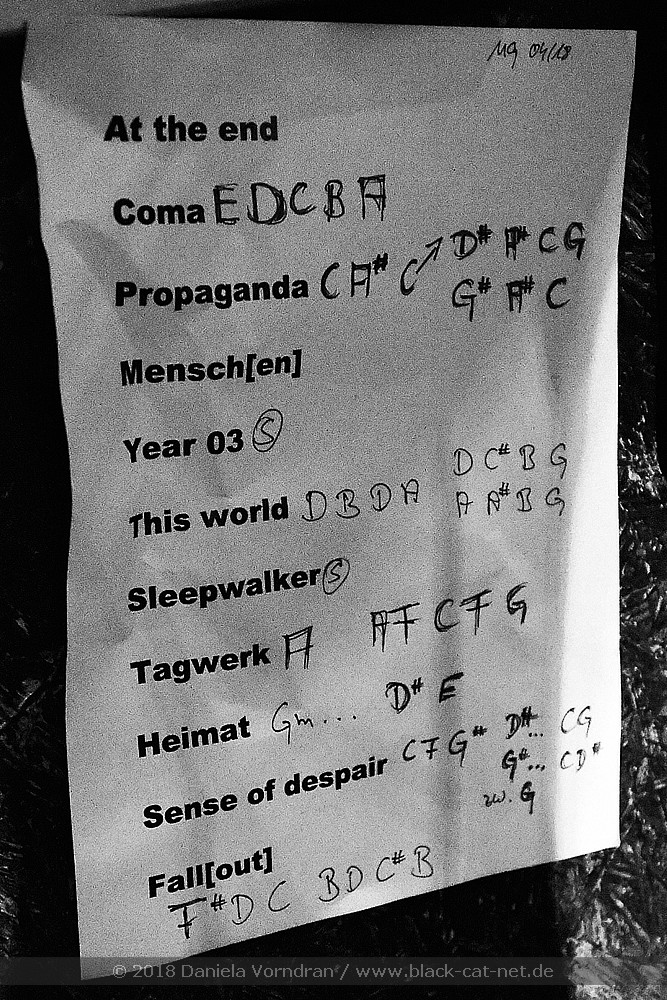 MG 04/18
At the end
Coma E D C B A
Propaganda C A# C ↗ D# A# C G
G# A# C
Mensch[en]
Year 03 Ⓢ
This world D B D A D C# B G
A A# B G
Sleepwalker Ⓢ
Tagwerk A A F C F G
Heimat Gm... D# E
Sense of despair C F G# D#... C G
G#... C D#
zw. G
Fall[out]
F# D C B D C# B
© 2018 Daniela Vorndran / www.black-cat-net.de